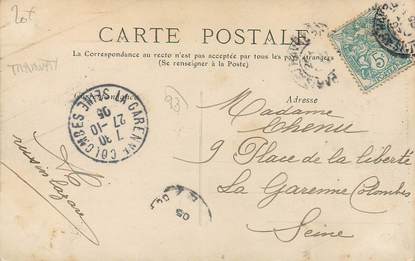 20f
CARTE POSTALE
La Correspondance au recto n'est pas acceptée par tous les pays étrangers
(Se renseigner à la Poste)
TRAMWAY
5
LA GARENNE-COLOMBES
SEINE
7 30
27-10
05
93
Adresse
Madame
Chenu
9 Place de la liberté
La Garenne Colombes
Seine
05